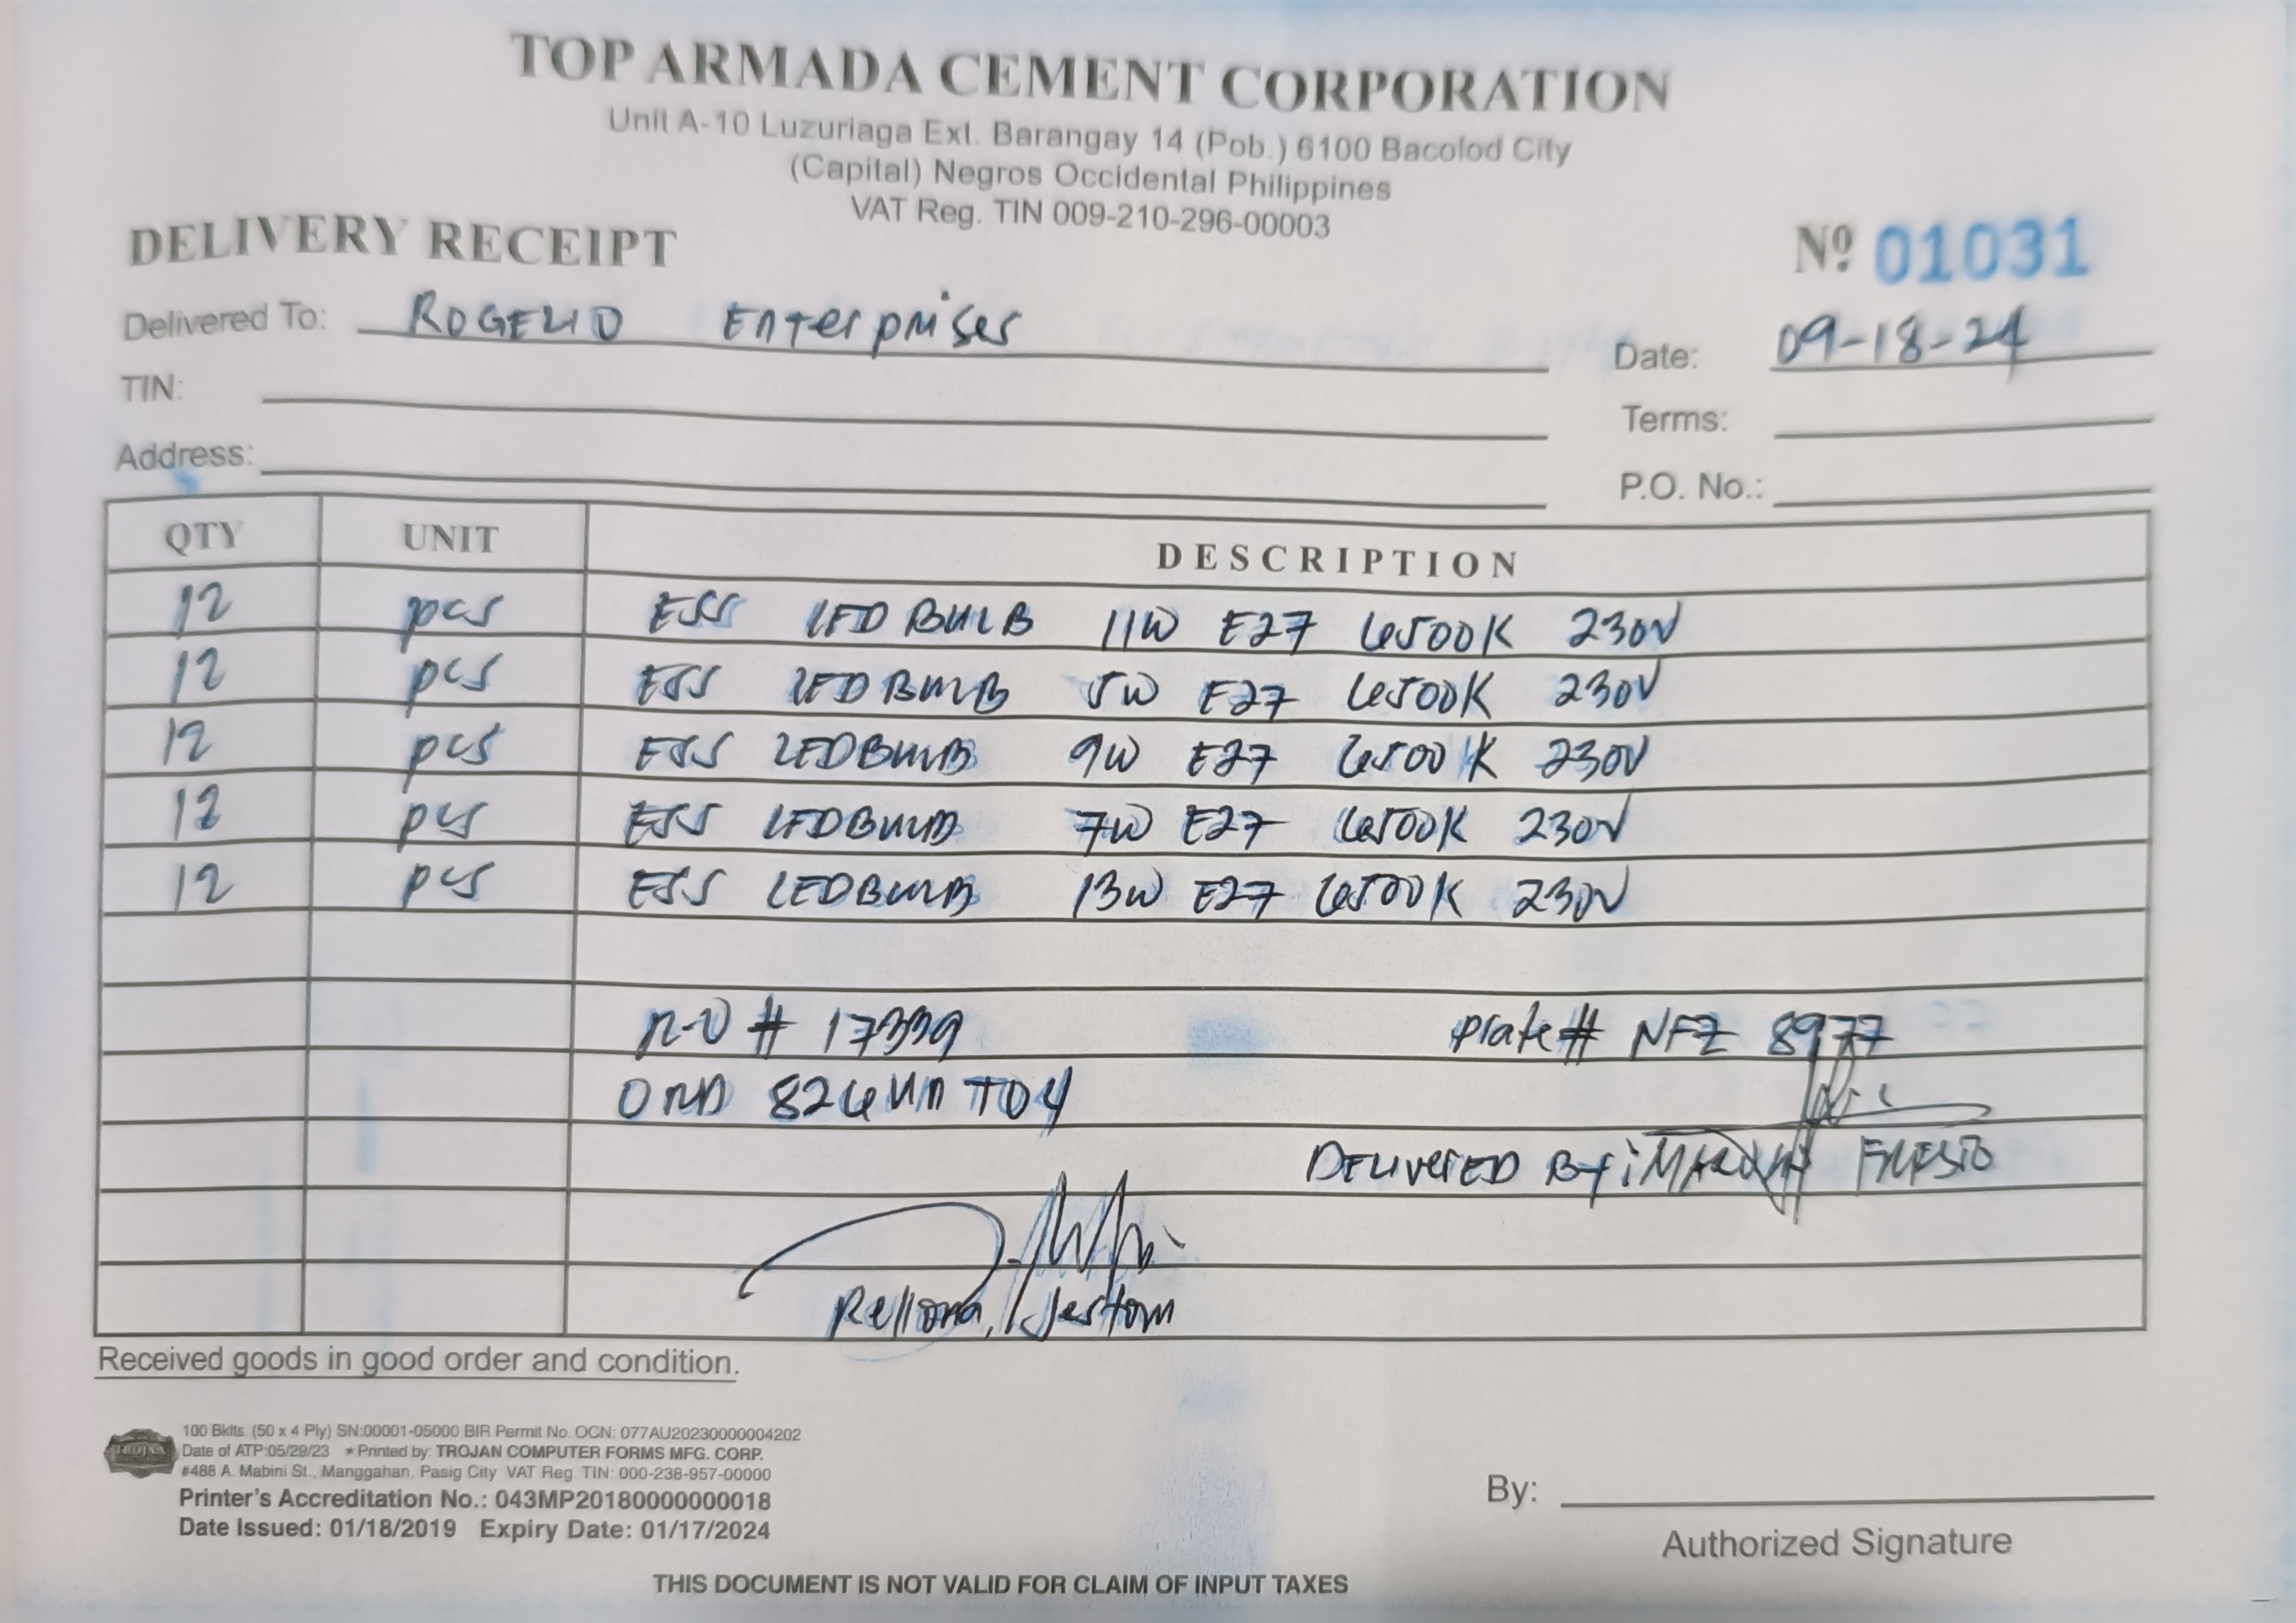 TOP ARMADA CEMENT CORPORATION
Unit A-10 Luzuriaga Ext. Barangay 14 (Pob.) 6100 Bacolod City
(Capital) Negros Occidental Philippines
VAT Reg. TIN 009-210-296-00003
DELIVERY RECEIPT
Nº 01031
Delivered To: ROGELIO Enterprises
Date: 09-18-24
TIN:
Terms:
Address:
P.O. No.:
QTY UNIT DESCRIPTION
12 pcs ESS LED BULB 11W E27 6500K 230V
12 pcs ESS LED BULB 5W E27 6500K 230V
12 pcs ESS LED BULB 9W E27 6500K 230V
12 pcs ESS LED BULB 7W E27 6500K 230V
12 pcs ESS LED BULB 13W E27 6500K 230V
# 17339 Plate# NFZ 8977
DELIVERED BY:
Rellona, Jestom
Received goods in good order and condition.
TROJAN
100 Bklts. (50 x 4 Ply) SN:00001-05000 BIR Permit No. OCN: 077AU20230000004202
Date of ATP:05/29/23 ★Printed by: TROJAN COMPUTER FORMS MFG. CORP.
#488 A. Mabini St., Manggahan, Pasig City VAT Reg. TIN: 000-238-957-00000
Printer's Accreditation No.: 043MP20180000000018
Date Issued: 01/18/2019 Expiry Date: 01/17/2024
By:
Authorized Signature
THIS DOCUMENT IS NOT VALID FOR CLAIM OF INPUT TAXES